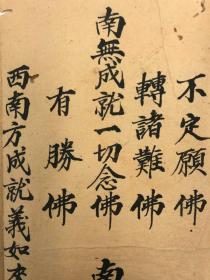 不定願佛
轉諸難佛
南無成就一切念佛
南
有勝佛
西南方成就義如來